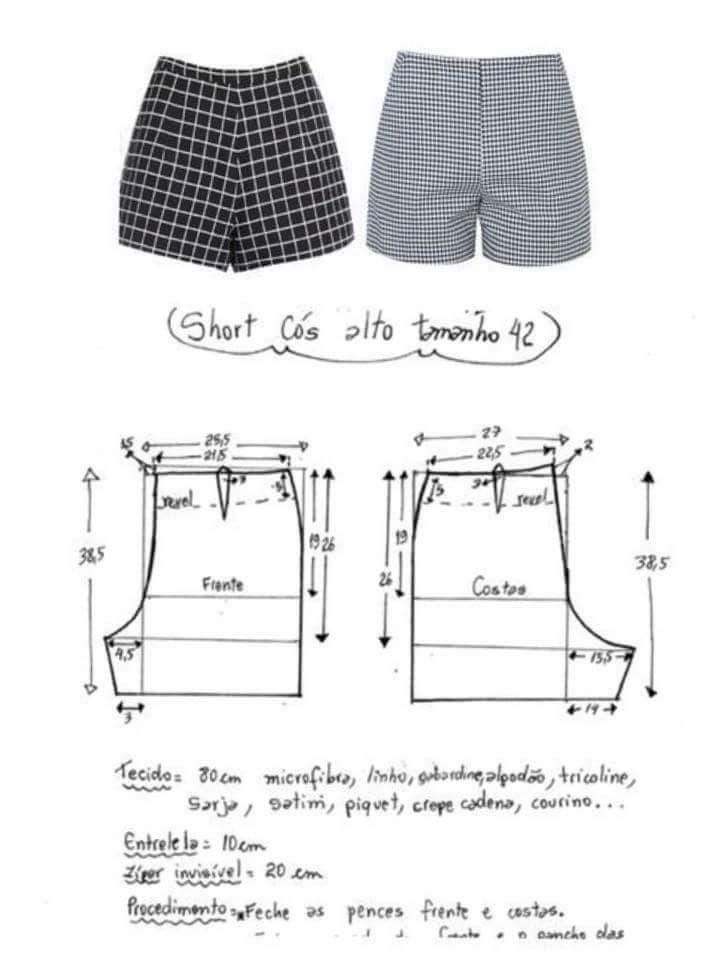 Short Cós alto tamanho 42
1,5
25,5
21,5
3
5
revel
Frente
19 26
38,5
4,5
3
27
22,5
2
3
5
revel
Costas
19
26
38,5
13,5
14
Tecido = 80cm microfibra, linho, gabardine, algodão, tricoline,
Sarja, Satim, piquet, crepe cadena, courino...
Entretela = 10cm
Zíper invisível = 20 cm
Procedimento = Feche as pences frente e costas.
gancho das